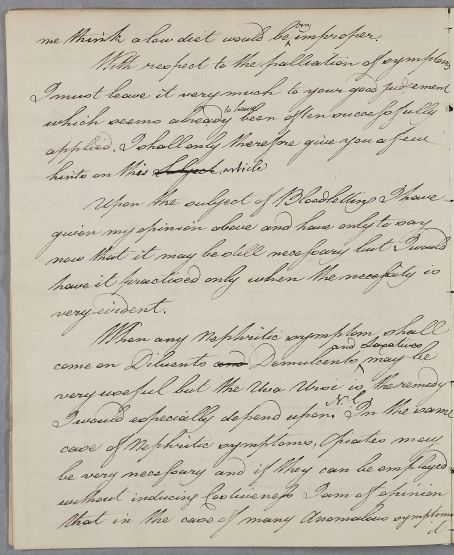 me think a low diet would be very improper.
With respect to the palliation of symptoms
I must leave it very much to your good judgement
which seems already to have been often successfully
applied. I shall only therefore give you a few
hints on this Subject article
Upon the subject of Bloodletting I have
given my opinion above and have only to say
now that it may be still necessary but I would
have it practised only when the necessity is
very evident.
When any Nephritic symptom shall
come on Diluents and Demulcents and Laxatives may be
very useful but the Uva Ursi is the remedy
I would especially depend upon. N.L. In the same
case of Nephritic symptoms, Opiates may
be very necessary and if they can be employed
without inducing Costiveness I am of opinion
that in the case of many Anomalous symptoms
it